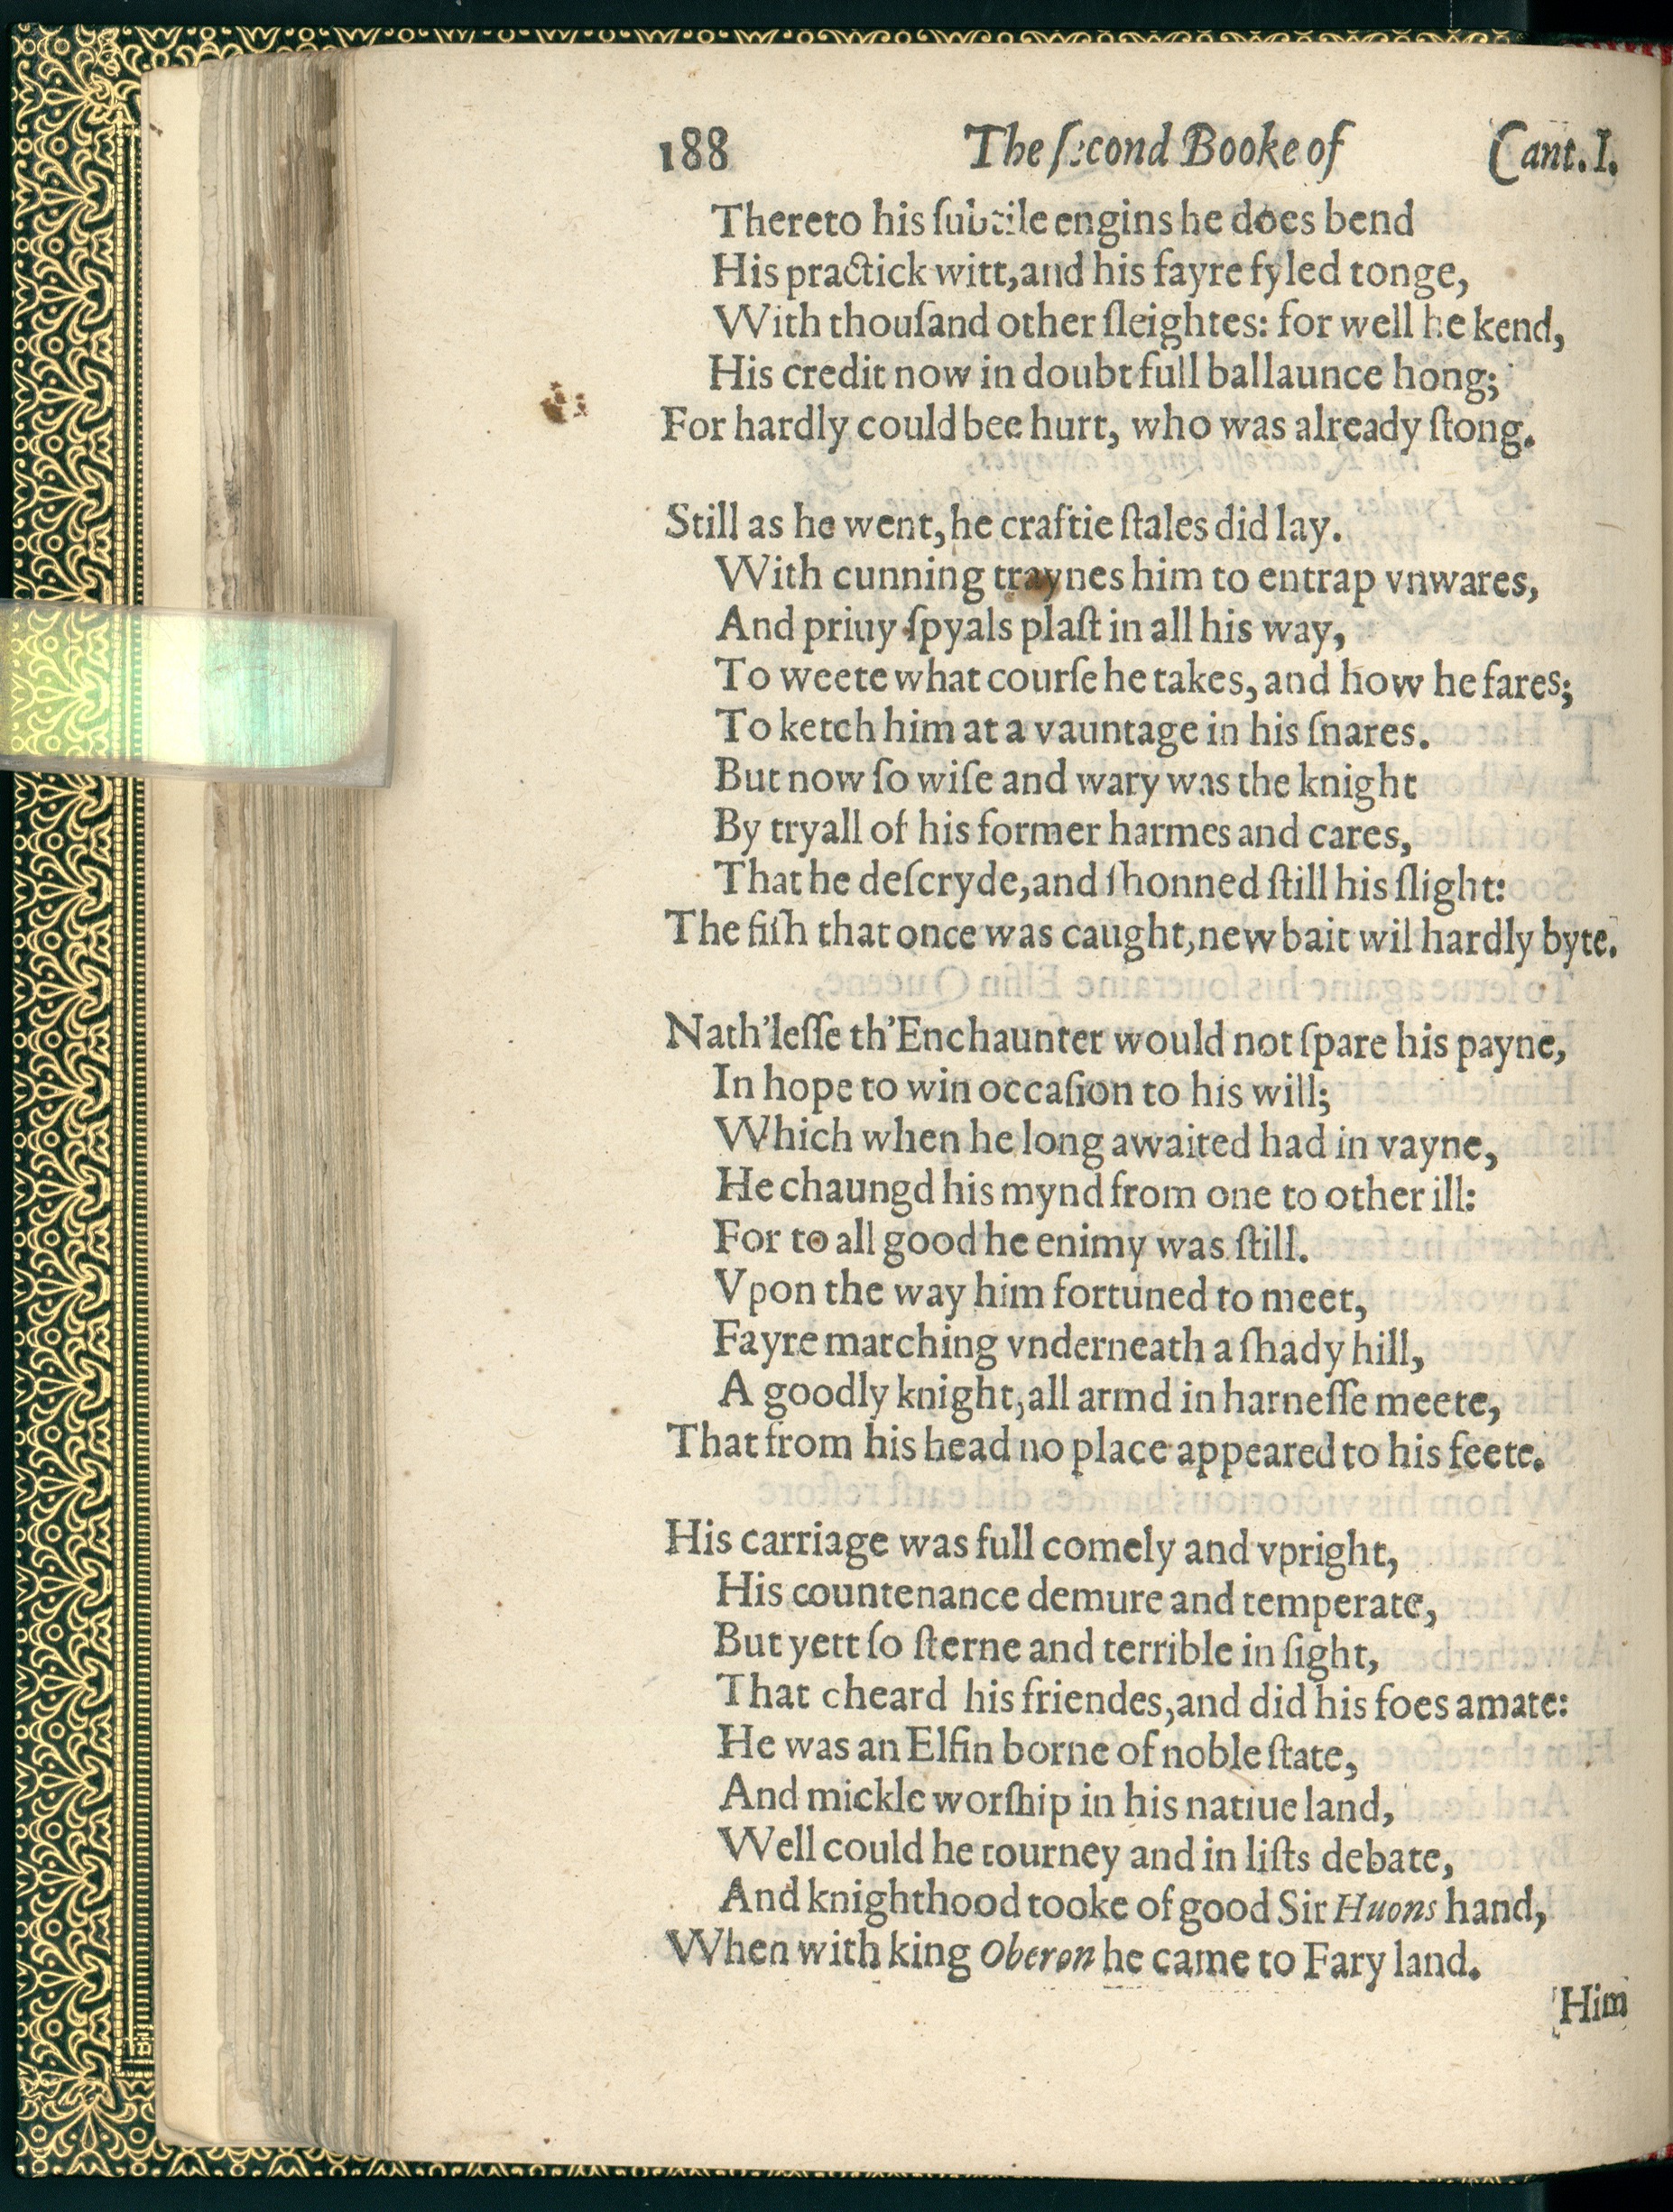 188 The ſecond Booke of Cant. I.
Thereto his ſubtile engins he does bend
His practick witt, and his fayre fyled tonge,
With thouſand other ſleightes: for well he kend,
His credit now in doubtfull ballaunce hong;
For hardly could bee hurt, who was already ſtong.
Still as he went, he craftie ſtales did lay.
With cunning traynes him to entrap vnwares,
And priuy ſpyals plaſt in all his way,
To weete what courſe he takes, and how he fares;
To ketch him at a vauntage in his ſnares.
But now ſo wiſe and wary was the knight
By tryall of his former harmes and cares,
That he deſcryde, and ſhonned ſtill his ſlight:
The fiſh that once was caught, new bait wil hardly byte.
Nath'leſſe th'Enchaunter would not ſpare his payne,
In hope to win occaſion to his will;
Which when he long awaited had in vayne,
He chaungd his mynd from one to other ill:
For to all good he enimy was ſtill.
Vpon the way him fortuned to meet,
Fayre marching vnderneath a ſhady hill,
A goodly knight, all armd in harneſſe meete,
That from his head no place appeared to his feete.
His carriage was full comely and vpright,
His countenance demure and temperate,
But yett ſo ſterne and terrible in ſight,
That cheard his friendes, and did his foes amate:
He was an Elfin borne of noble ſtate,
And mickle worſhip in his natiue land,
Well could he tourney and in liſts debate,
And knighthood tooke of good Sir Huons hand,
When with king Oberon he came to Fary land.
Him